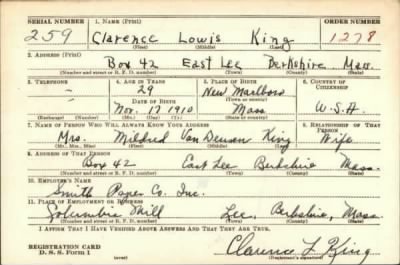 SERIAL NUMBER 1. NAME (Print) ORDER NUMBER
259 Clarence Lowis King 1278
(First) (Middle) (Last)
2. ADDRESS (Print)
Box 42 East Lee Berkshire Mass.
(Number and street or R. F. D. number) (Town) (County) (State)
3. TELEPHONE 4. AGE IN YEARS 5. PLACE OF BIRTH 6. COUNTRY OF CITIZENSHIP
- 29 New Marlboro
DATE OF BIRTH (Town or county)
Nov. 17 1910 Mass U.S.A.
(Exchange) (Number) (Mo.) (Day) (Yr.) (State or country)
7. NAME OF PERSON WHO WILL ALWAYS KNOW YOUR ADDRESS 8. RELATIONSHIP OF THAT PERSON
Mrs. Mildred Van Deusen King Wife
(Mr., Mrs., Miss) (First) (Middle) (Last)
9. ADDRESS OF THAT PERSON
Box 42 East Lee Berkshire Mass.
(Number and street or R. F. D. number) (Town) (County) (State)
10. EMPLOYER'S NAME
Smith Paper Co. Inc.
11. PLACE OF EMPLOYMENT OR BUSINESS
Columbia Mill Lee, Berkshire, Mass
(Number and street or R. F. D. number) (Town) (County) (State)
I AFFIRM THAT I HAVE VERIFIED ABOVE ANSWERS AND THAT THEY ARE TRUE.
REGISTRATION CARD
D. S. S. Form 1 (over) Clarence L King